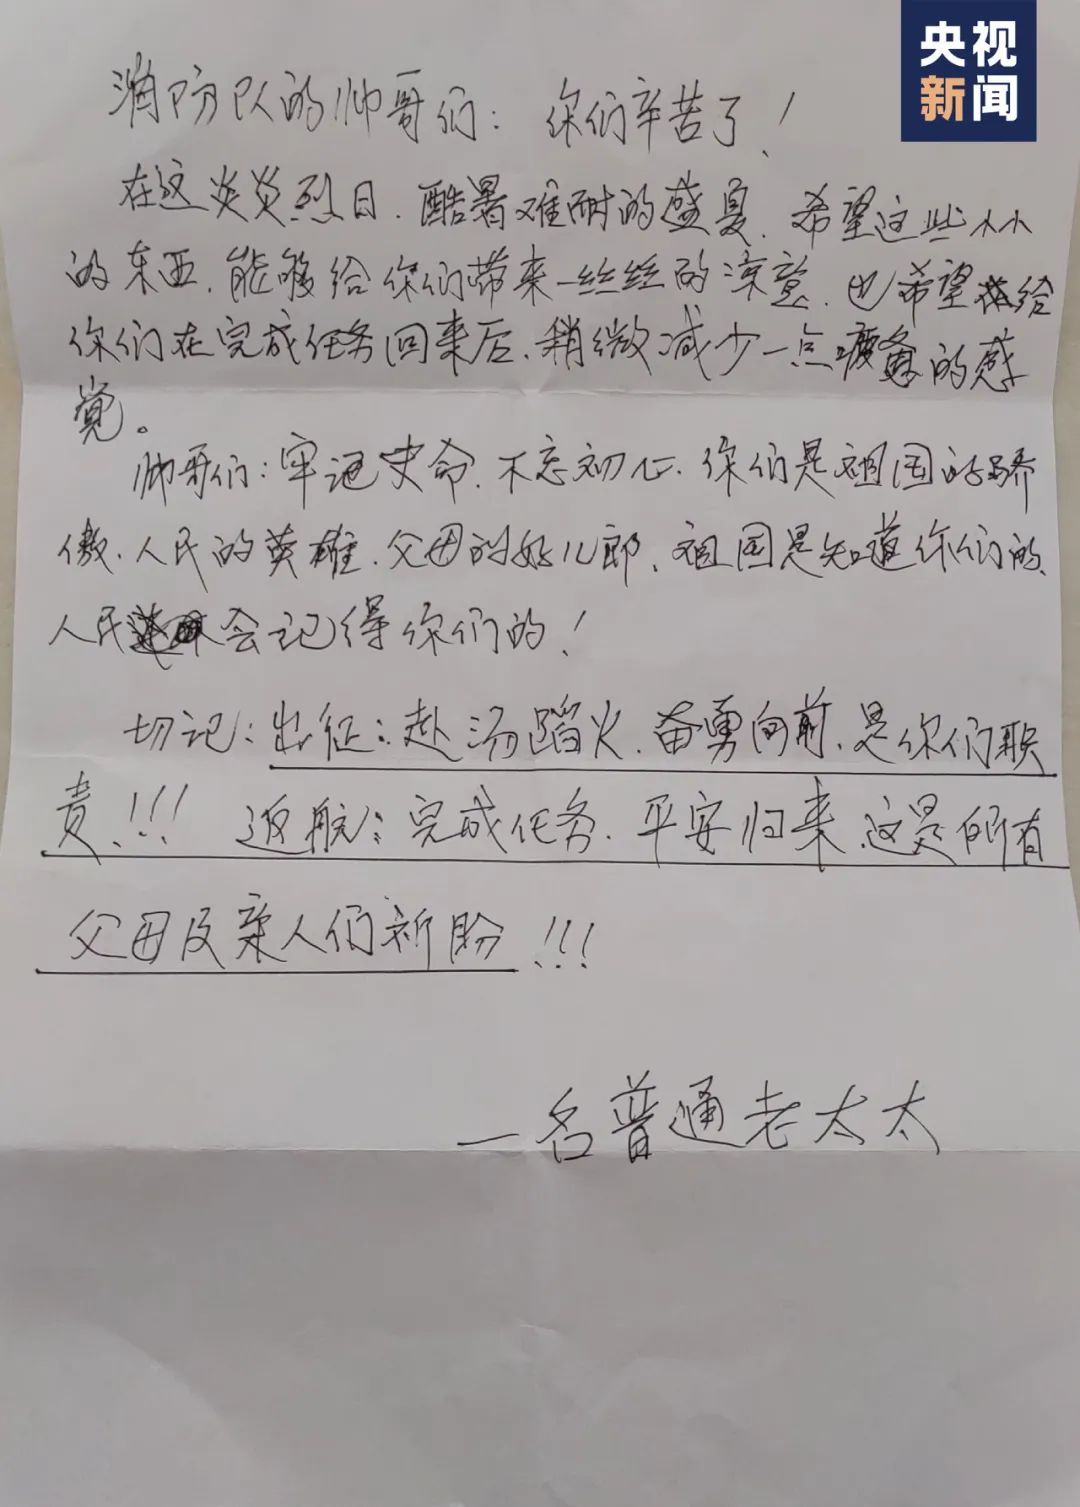 央视
新闻
消防队的帅哥们：你们辛苦了！
在这炎炎烈日、酷暑难耐的盛夏、希望这些小小
的东西、能够给你们带来一丝丝的凉意、也希望给
你们在完成任务回来后、稍微减少一点疲惫的感
觉。
帅哥们：牢记史命、不忘初心、你们是祖国的骄
傲、人民的英雄、父母的好儿郎、祖国是知道你们的、
人民会记得你们的！
切记：出征：赴汤蹈火、奋勇向前、是你们职
责！！！ 返航：完成任务、平安归来、这是所有
父母及亲人们祈盼！！！
一名普通老太太